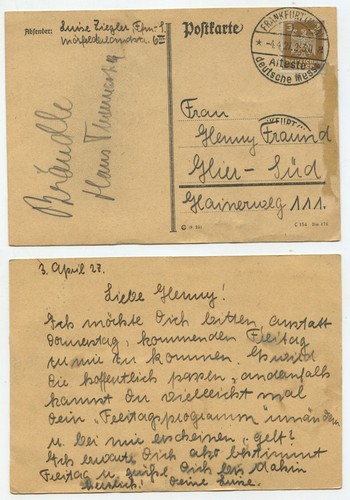 Absender: Luise Ziegler Ffm-S.
Mörfelderlandstr. 6III
Postkarte
FRANKFURT (MAIN)
* -4.4.27. 2-3 0 *
Älteste
deutsche Messe
Brändle
Hans
Frau
Henny Freund
Hier-Süd
Hainerweg 111.
3. April 27.
Liebe Henny!
Ich möchte Dich bitten, anstatt
Donnerstag, kommenden Freitag
zu mir zu kommen. Es wird
Dir hoffentlich passen, andernfalls
kannst Du vielleicht mal
Dein „Freitagsprogramm" umändern
u. bei mir erscheinen, gelt?
Ich erwarte Dich also bestimmt
Freitag u. grüße Dich bis dahin
herzl.! Deine Luise.